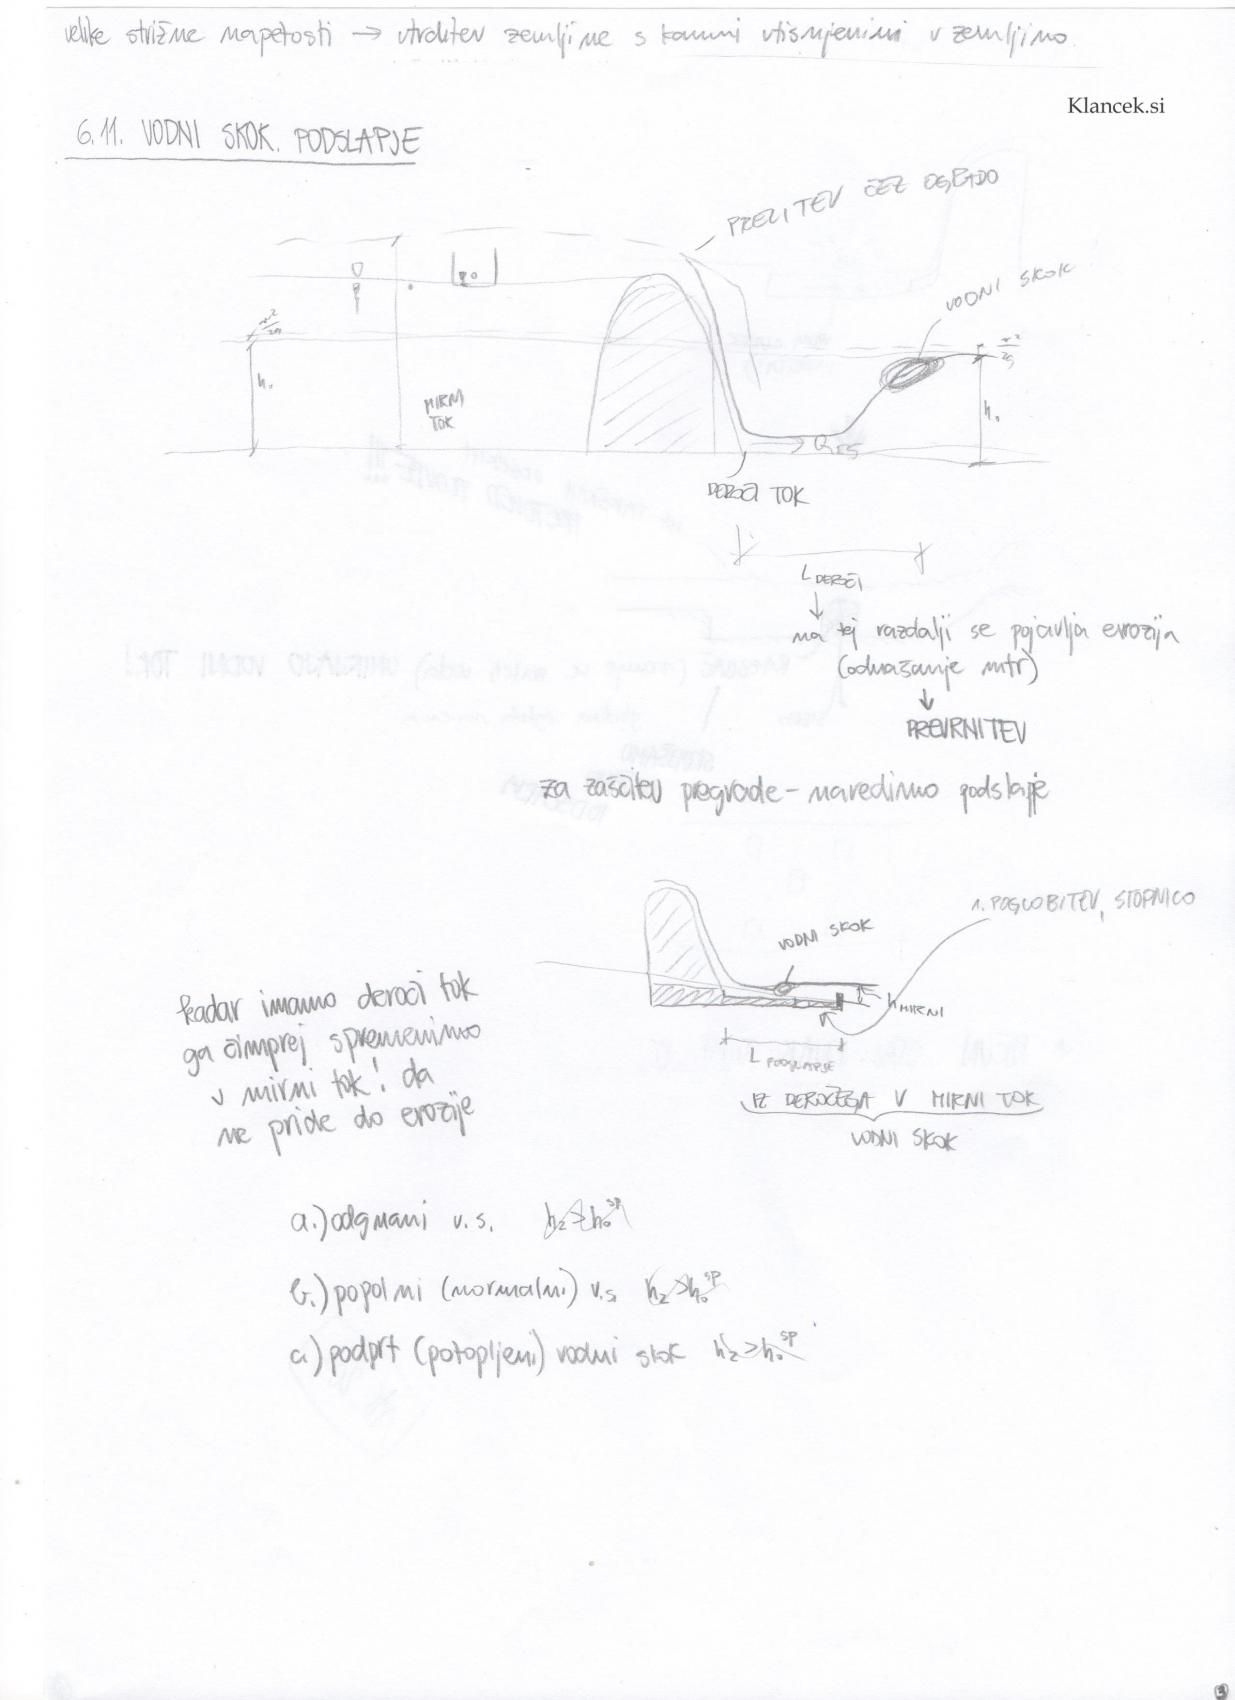 velike strižne napetosti → utrditev zemljine s kamni vtisnjenimi v zemljino
Klancek.si
6.11. VODNI SKOK. PODSLAPJE
PRELITEV ČEZ OGRADO
VODNI SKOK
v²/2g
v²/2g
h₀
h₀
MIRNI
TOK
DEROČI TOK
L DEROČI
↓
na tej razdalji se pojavlja erozija
(odnašanje mtr)
↓
PREVRNITEV
za zaščitev pregrade - naredimo podslapje
1. POGLOBITEV, STOPNICO
VODNI SKOK
h MIRNI
L PODSLAPJE
IZ DEROČEGA V MIRNI TOK
VODNI SKOK
kadar imamo deroči tok
ga čimprej spremenimo
v mirni tok! da
ne pride do erozije
a.) odgnani v.s. h₂>h₀ˢᵖ
b.) popolni (normalni) v.s. h₂>h₀ˢᵖ
c.) podprt (potopljeni) vodni skok h₂>h₀ˢᵖ